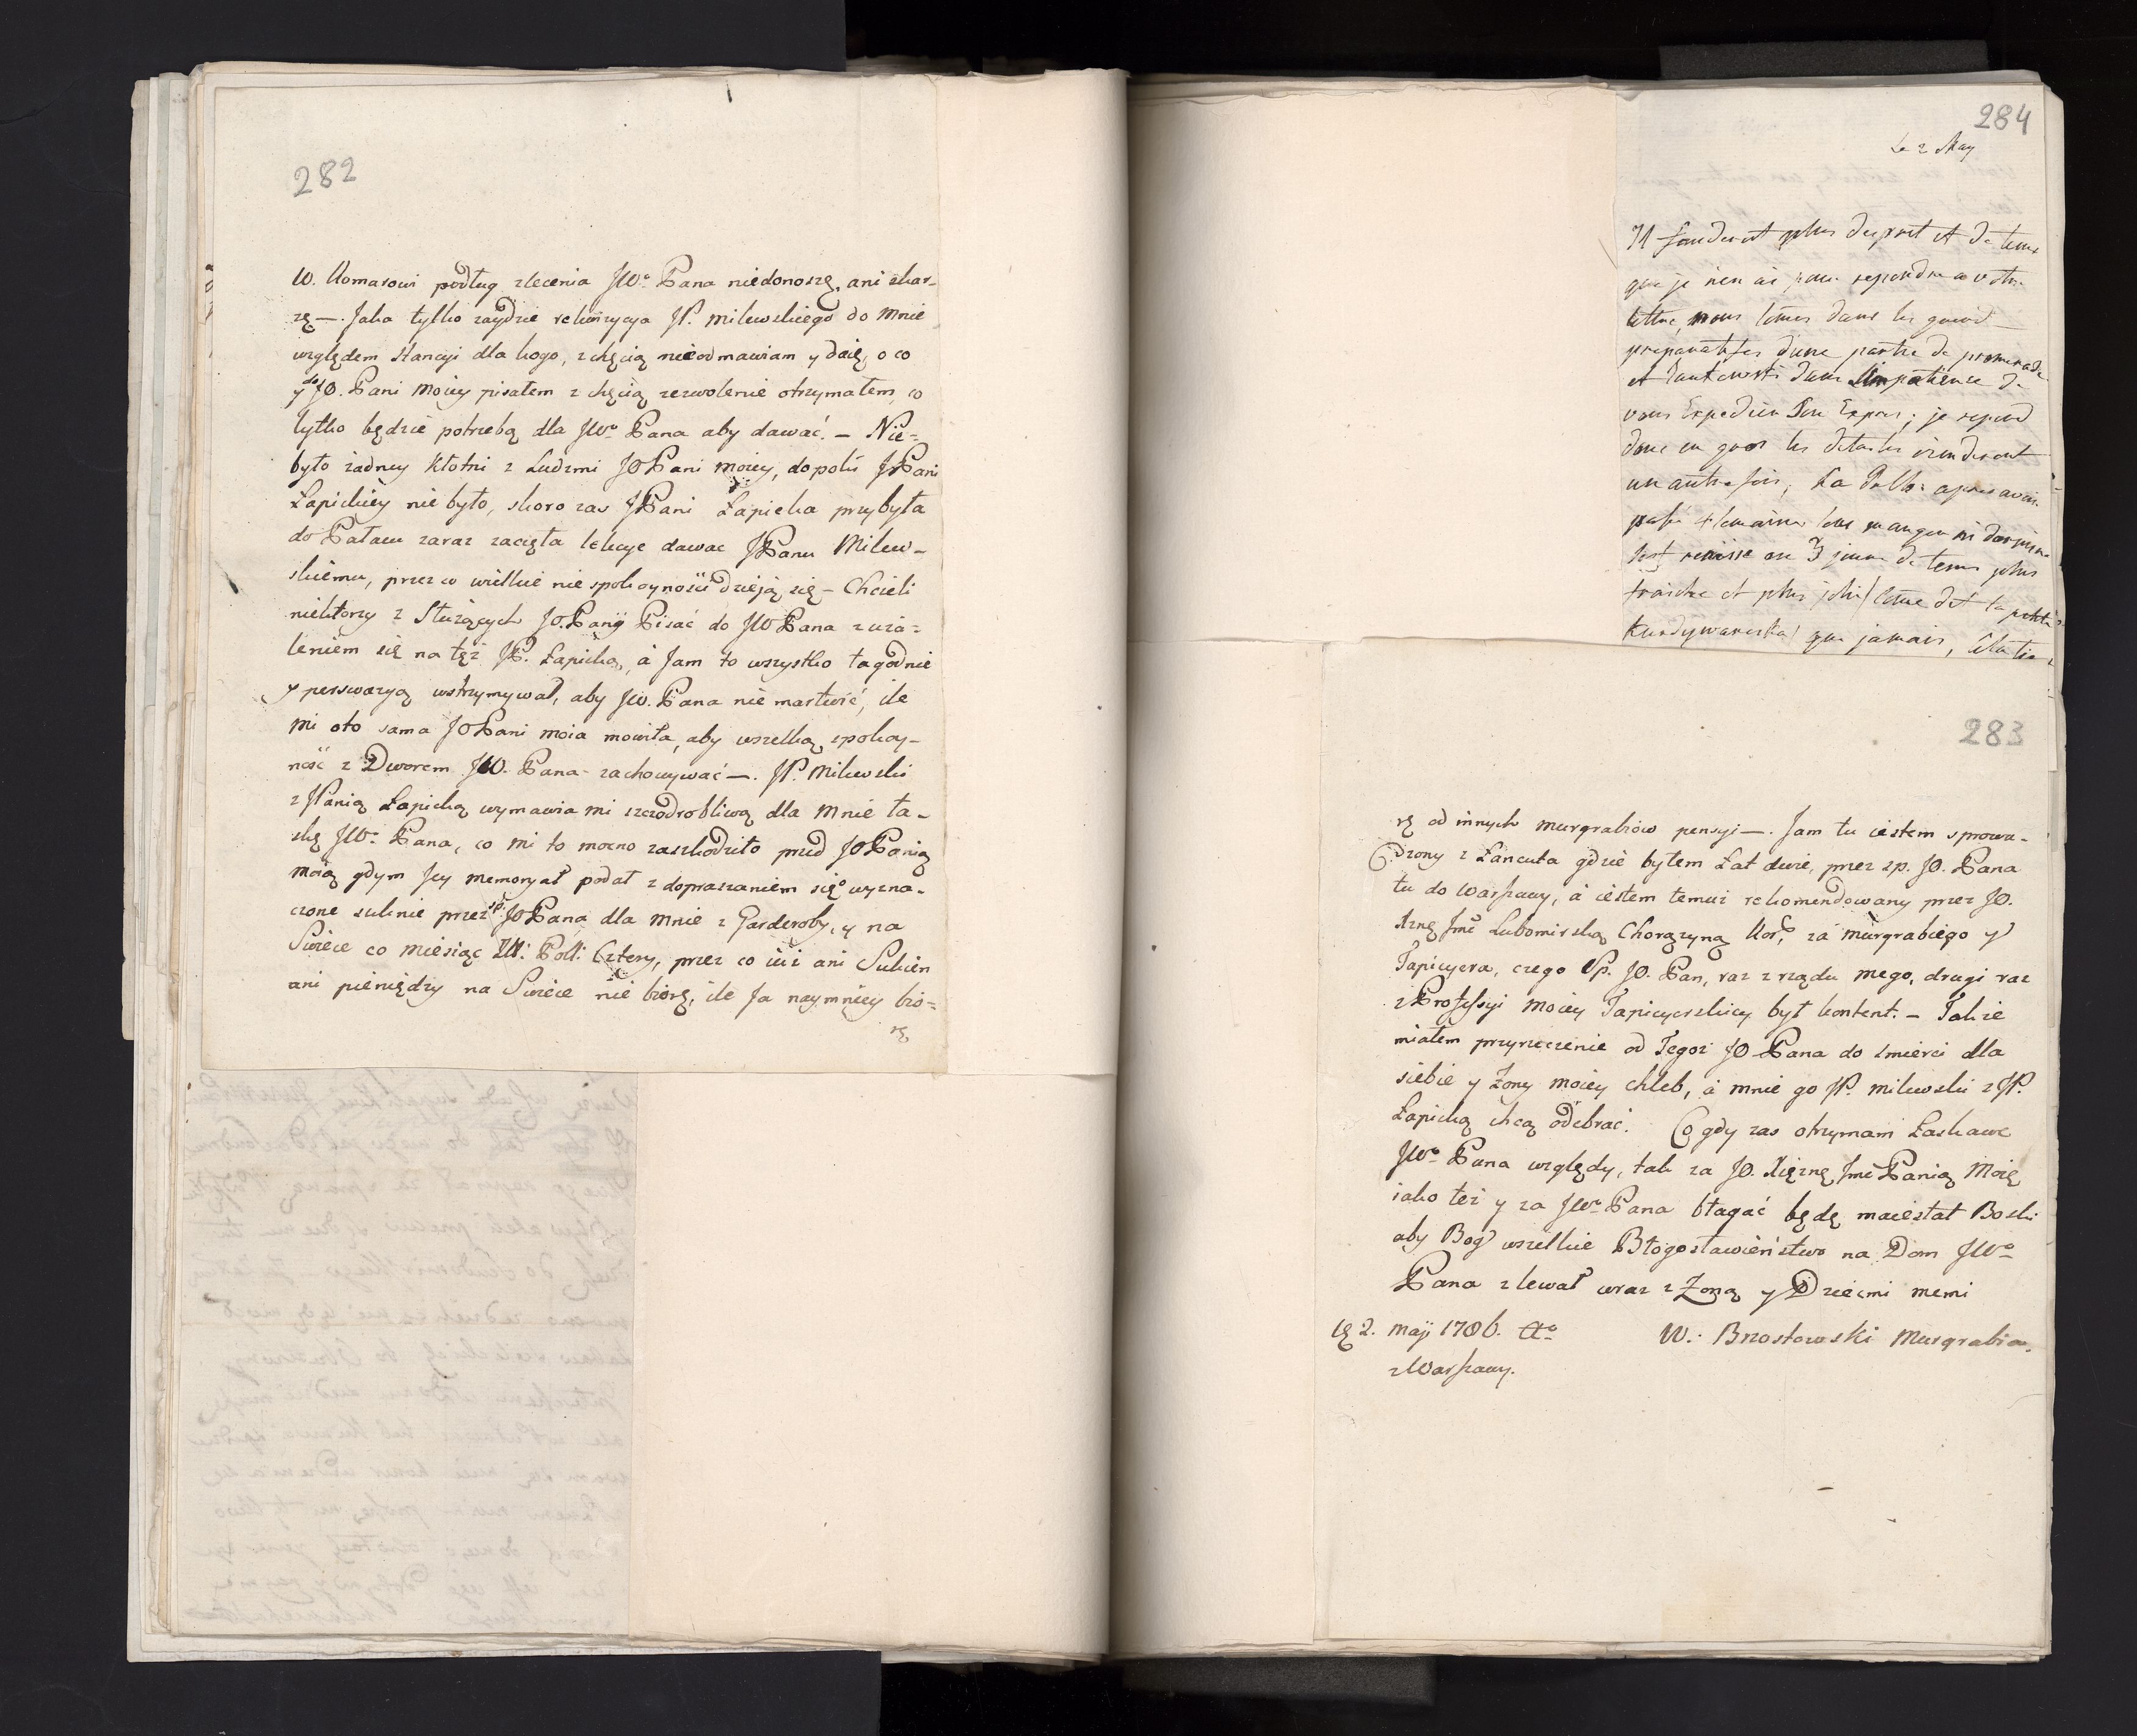 282
W. Komarowi podług zlecenia JWo. Pana niedonoszę, ani skar-
żę —. Jaka tylko zaydzie rekwizycya JP. Milewskiego do mnie
względem Stancyi dla kogo, z chęcią nieodmawiam y daię, o co
y do JO. Pani Moiey pisałem z chęcią zezwolenie otrzymałem, co
tylko będzie potrzebą dla JWo. Pana aby dawać. — Nie-
było żadney kłotni z Ludzmi JO Pani moiey, dopoki JPani
Łapickiey nie było, skoro zas JPani Łapicka przybyła
do Pałacu zaraz zaczęła lekcye dawac JPanu Milew-
skiemu, przez co wielkie niespokoynosci dzieją się — Chcieli
niektorzy z Służących JO. Panÿ Pisać do JW Pana z uża-
leniem się na tęż JP. Łapicką, à Jam to wszystko łagodnie
y perswazyą wstrzymywał, aby JW. Pana nie martwić, ile
mi oto sama JO Pani moia mowiła, aby wszelką spokoy-
ność z Dworem JW. Pana zachowywać —. JP. Milewski
z JPanią Łapicką wymawia mi szczodrobliwą dla mnie ła-
skę JWo. Pana, co mi to mocno zaszkodziło przed JO Panią
moią gdym Jey memoryał podał z dopraszaniem się wyzna-
czone suknie przez sp. JO Pana dla mnie z Garderoby, y na
Swiece co miesiąc Zł: Pol: Cztery, przez co iuż ani Sukien
ani pieniędzy na Swiece nie biorę, ile Ja naymniey bio-
rę
284
Le 2 May
Il faudroit plus desprit et de tems
que je n'en ai pour repondre a votre
lettre, nous somes dans les grand
preparatifes d'une partie de promenade
et dans l'impatience de
vous Expedier Son Expres; je repond
donc en gros les detailes viendront
un autre fois, La après avoir
passé 4 semaines sans manger ni dormir
sest remisse en 3 jours de tems plus
fraiche et plus jolie (come dit la petite
que jamais,
283
rę od innych murgrabiow pensyi —. Jam tu iestem sprowa-
dzony z Łancuta gdzie byłem Lat dwie, przez sp. JO. Pana
tu do Warszawy, à iestem temuż rekomendowany przez JO.
Xznę Jmć Lubomirską Chorążyną Kor, za murgrabiego y
Tapicyera, czego Sp. JO. Pan, raz z rządu mego, drugi raz
z Professyi moiey Tapicyerskiey był kontent. — Także
miałem przyrzeczenie od Tegoż JO Pana do smierci dla
siebie y Zony moiey chleb, à mnie go JP. Milewski z JP.
Łapicką chcą odebrać. Co gdy zas otrzymam Łaskawe
JWo. Pana względy, tak za JO. Xiężnę Jmć Panią Moię
iako też y za JWo. Pana błagać będę maiestat Boski
aby Bog wszelkie Błogosławieństwo na Dom JWo.
Pana zlewał wraz z Zoną y Dziecmi memi
2. Maÿ 1786. Ao W. Brzostowski Murgrabia.
z Warszawy.